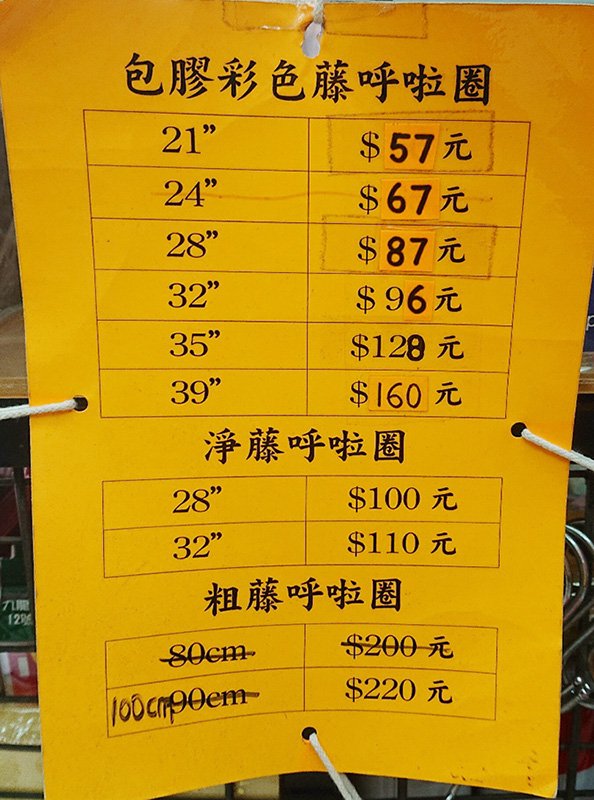 包膠彩色藤呼啦圈
21” $57元
24” $67元
28” $87元
32” $96元
35” $128元
39” $160元
淨藤呼啦圈
28” $100元
32” $110元
粗藤呼啦圈
80cm $200元
100cm 90cm $220元
九龍